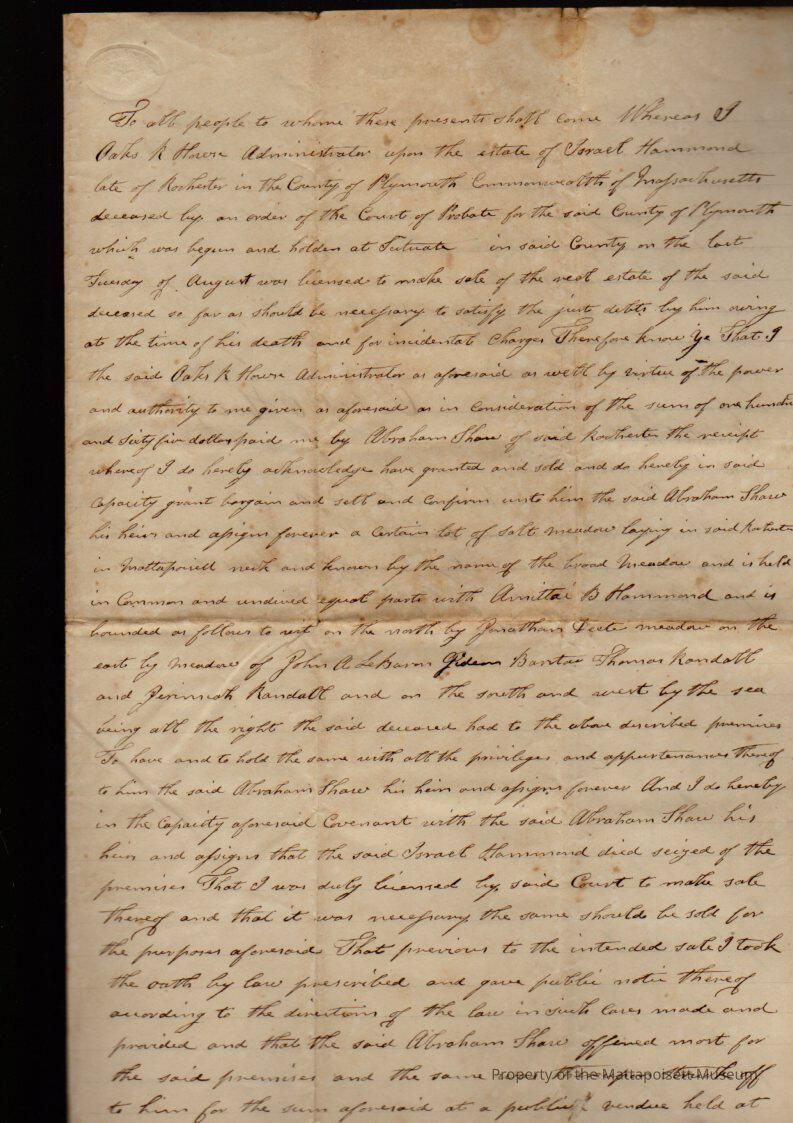 To all people to whome these presents shall come Whereas I
Oaks R House Administrator upon the estate of Israel Hammond
late of Rochester in the County of Plymouth Commonwealth of Massachusetts
deceased by an order of the Court of Probate for the said County of Plymouth
which was begun and holden at Situate in said County on the last
Tuesday of August was licensed to make sale of the real estate of the said
deceased so far as should be necessary to satisfy the just debts by him owing
at the time of his death and for incidental Charges Therefore know ye That I
the said Oaks R House Administrator as aforesaid as well by virtue of the power
and authority to me given as aforesaid as in Consideration of the sum of one hundred
and sixty five dollars paid me by Abraham Shaw of said Rochester the receipt
whereof I do hereby acknowledge have granted and sold and do hereby in said
Capacity grant bargain and sell and Confirm unto him the said Abraham Shaw
his heirs and assigns forever a Certain lot of salt meadow laying in said Rochester
in Mattapoisett neck and known by the name of the broad Meadow and is held
in Common and undivid equal parts with Amittai B Hammond and is
bounded as follows to wit on the north by Jonathan meadow on the
east by meadow of John A LeBaron Gideon Barstow Thomas Randall
and Jerimiah Randall and on the south and west by the sea
being all the right the said deceased had to the above discribed premises
To have and to hold the same with all the privileges and appurtenances thereof
to him the said Abraham Shaw his heirs and assigns forever And I do hereby
in the Capacity aforesaid Covenant with the said Abraham Shaw his
heirs and assigns that the said Israel Hammond died seized of the
premises That I was duly licensed by said Court to make sale
thereof and that it was necessary the same should be sold for
the purposes aforesaid That previous to the intended sale I took
the oath by law prescribed and gave public notice thereof
according to the directions of the law in such Cases made and
provided and that the said Abraham Shaw offered most for
the said premises and the same off
Property of the Mattapoisett Museum
to him for the sum aforesaid at a public vendue held at